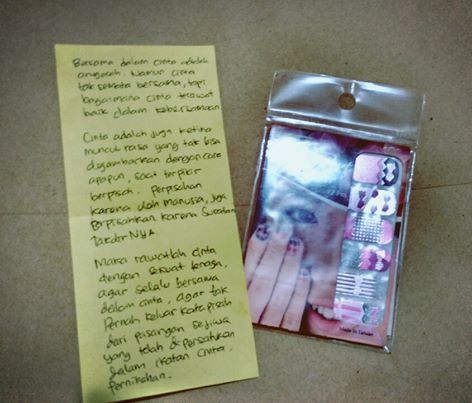 Bersama dalam cinta adalah
anugerah. Namun cinta
tak semata bersama, tapi
bagaimana cinta terawat
baik dalam kebersamaan.
Cinta adalah juga ketika
muncul rasa yang tak bisa
digambarkan dengan cara
apapun, saat terpikir
berpisah. Perpisahan
karena ulah manusia, juga
Berpisahkan karena Suratan
Takdir NYA.
Maka rawatlah cinta
dengan sekuat tenaga,
agar selalu bersama
dalam cinta, agar tak
Pernah keluar kata pisah
dari pasangan sejiwa
yang telah dipersatukan
dalam ikatan cinta.
Pernikahan.
Made in Taiwan